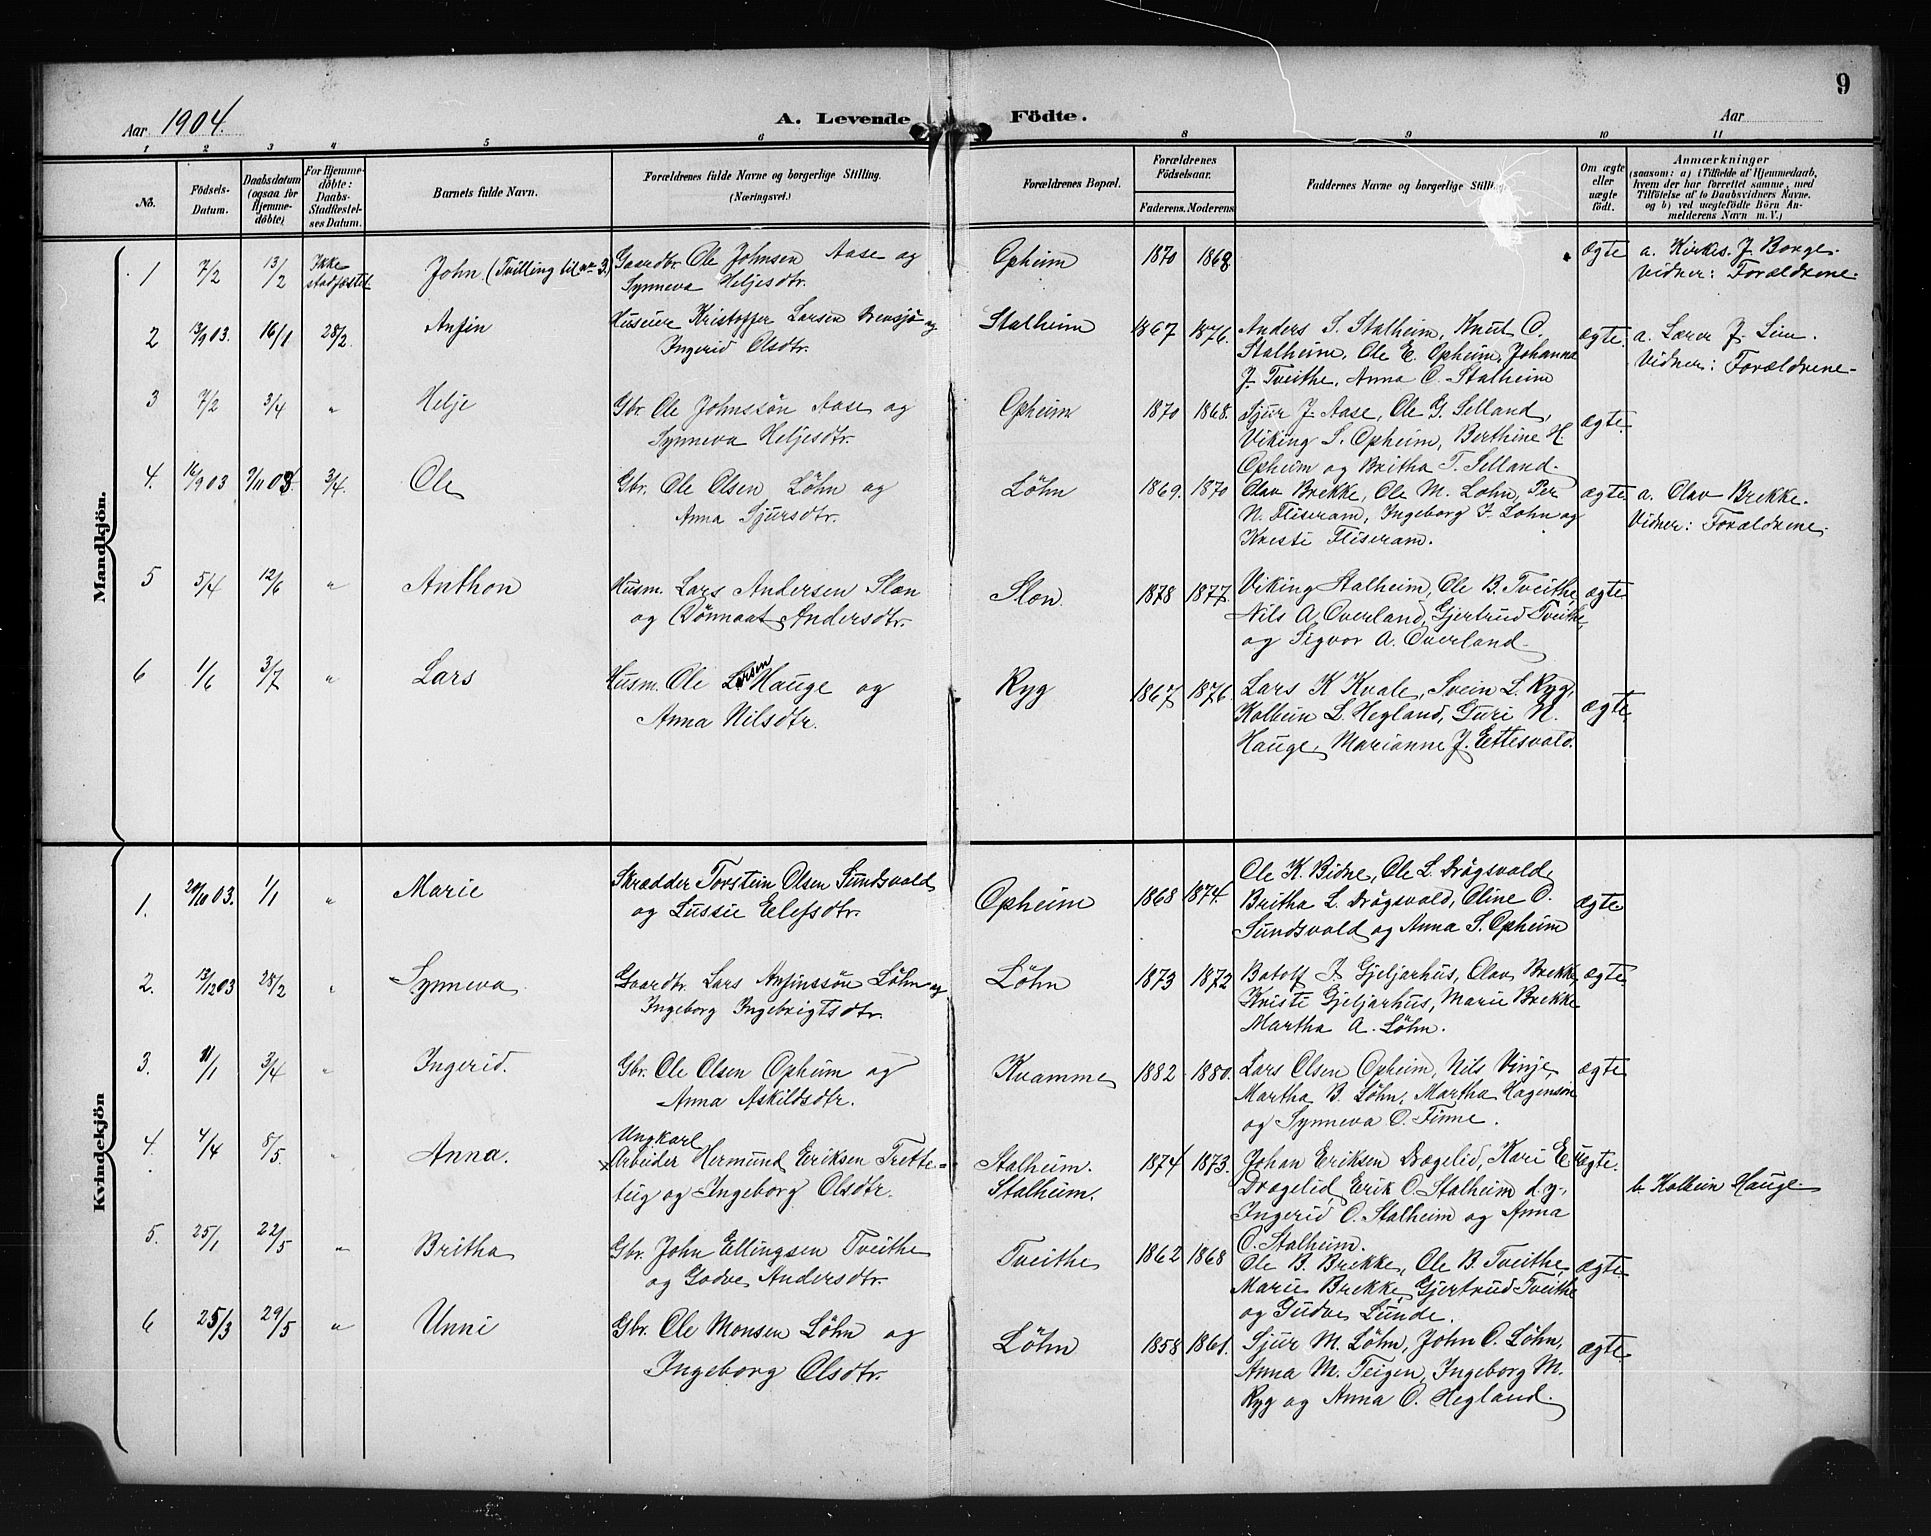 9
Aar 1904.
A. Levende Födte.
Aar
1 2 3 4 5 6 8 9 10 11
No.
Födsels-
Datum.
Daabsdatum
(ogsaa for
Hjemme-
döbte)
For Hjemme-
döbte:
Daabs-
Stadfestel-
ses Datum.
Barnets fulde Navn.
Forældrenes fulde Navne og borgerlige Stilling.
(Næringsvei.)
Forældrenes Bopæl.
Forældrenes
Födselsaar.
Faderens. Moderens
Faddernes Navne og borgerlige Stilling
Om ægte
eller
uægte
födt.
Anmærkninger
(saasom: a) i Tilfælde af Hjemmedaab,
hvem der har forrettet samme, med
Tilföielse af to Daabsvidners Navne.
og b) ved uægtefödte Börn An-
melderens Navn m. V.)
Mandkjön.
1 7/2 13/2 Ikke
stadfæstet John (Tvilling til nr 3.) Gaardbr. Ole Johnsen Aase og
Synneva Heljesdtr. Opheim 1870 1868 ægte a. Kirkes. J. Borge.
Vidner: Forældrene.
2 3/9 03. 16/1 28/2. Anfin Kristoffer Larsen og
Ingerid Olsdtr. Stalheim 1867 1876. Anders S. Stalheim, Knut O.
Stalheim, Ole E. Opheim, Johanna
J. Tveithe, Anna O. Stalheim ægte. a. Lærer J. Lein.
Vidner: Forældrene.
3 7/2 3/4 " Helje Gbr. Ole Johnssön Aase og
Synneva Heljesdtr. Opheim 1870 1868. Sjur J. Aase, Ole G. Selland,
Viking S. Opheim, Berthine H.
Opheim og Britha T. Selland. ægte.
4. 16/9 03 9/11 03. 3/4. Ole Gbr. Ole Olsen Löhn og
Anna Sjursdtr. Löhn 1869. 1870 Olav Brekke, Ole M. Lohn, Per
N. Fliseram, Ingeborg J. Lohn og
Kristi Fliseram. ægte. a. Olav Brekke.
Vidner: Forældrene.
5 5/4 12/6 " Anthon Husm. Lars Andersen Slæn
og Dönnaat Andersdtr. Slæn. 1878 1877. Viking Stalheim, Ole B. Tveithe,
Nils A. Overland, Gjertrud Tveithe,
og Sigvor A. Overland. ægte
6 1/6 3/7 " Lars Husm. Ole Larsen Hauge og
Anna Nilsdtr. Ryg 1867 1876. Lars K Kvale, Svein L. Ryg,
Kolbein L. Hegland, Guri N.
Hauge, Marianne J. Ettesvold. ægte.
Kvindekjön
1. 20/10 03. 1/1 " Marie Skrædder Torstein Olsen Sundsvold
og Lussie Elefsdtr. Opheim 1868 1874. Ole K. Bidne, Ole L. Drögsvold,
Britha L. Drögsvold, Oline O.
Sundsvold og Anna S. Opheim ægte
2. 13/12 03 28/2 " Synneva Gaardbr. Lars Anfinssön Löhn og
Ingeborg Ingebrigtsdtr. Löhn 1873 1872 Botolf J. Gjeljarhus, Olav Brekke,
Kristi Gjeljarhus, Marie Brekke
Martha A. Löhn. ægte
3. 11/1 3/4 " Ingerid. Gbr. Ole Olsen Opheim og
Anna Askildsdtr. Kvamme 1882 1880. Lars Olsen Opheim, Nils Vinje,
Martha B. Löhn, Martha Haginson
og Synneva O. Finne. ægte
4. 4/4 8/5. " Anna. Ungkarl
Arbeider Hermund Eriksen Trette-
teig og Ingeborg Olsdtr. Stalheim.
Stalheim. 1874 1873. Johan Eriksen Drægelid, Kari E
Drægelid, Erik O. Stalheim d.y.,
Ingerid O. Stalheim og Anna
O. Stalheim. uægte. b. Kolbein Hauge
5. 25/1 22/5 " Britha Gbr. John Ellingsen Tveithe
og Godve Andersdtr. Tveithe 1862 1868 Ole B. Brekke, Ole B. Tveithe,
Marie Brekke, Gjertrud Tveithe
og Gudve Lunde. ægte
6 25/3 29/5 " Unni Gbr. Ole Monsen Löhn og
Ingeborg Olsdtr. Löhn 1858 1861. Sjur M. Löhn, John O. Löhn,
Anna M. Teigen, Ingeborg M.
Ryg og Anna O. Hegland. ægte.